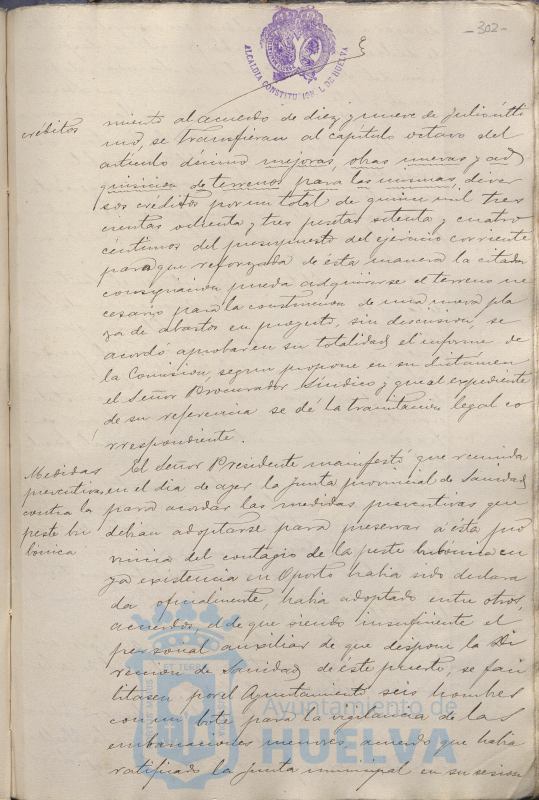 -302-
ALCALDIA CONSTITUCIONAL DE HUELVA
créditos
miento al acuerdo de diez y nueve de Julio últi
mo, se transfieran al capítulo octavo del
artículo décimo mejoras, obras nuevas y ad
quisicion de terrenos para las mismas, diver
sos créditos por un total de quince mil tres
cientas ochenta y tres pesetas setenta y cuatro
céntimos del presupuesto del ejercicio corriente
para que reforzada de ésta manera la citada
consignacion pueda adquirirse el terreno ne
cesario para la construccion de una nueva pla
za de abastos en proyecto, sin discusion, se
acordó aprobar en su totalidad el informe de
la Comision, segun propone en su dictámen
el Señor Procurador Síndico y que al expediente
de su referencia se dé la tramitacion legal co
rrespondiente.
Medidas
preventivas
contra la
peste bu
bónica
El Señor Presidente manifestó que reunida
en el dia de ayer la Junta provincial de Sanidad
para acordar las medidas preventivas que
debian adoptarse para preservar a ésta pro
vincia del contagio de la peste bubónica cu
ya existencia en Oporto habia sido declara
da oficialmente, habia adoptado entre otros
acuerdos, el de que siendo insuficiente el
personal auxiliar de que dispone la Di
reccion de Sanidad de éste puerto, se faci
litasen por el Ayuntamiento seis hombres
con un bote para la vigilancia de las
embarcaciones menores, acuerdo que habia
ratificado la Junta municipal en su sesion
Ayuntamiento de
HUELVA